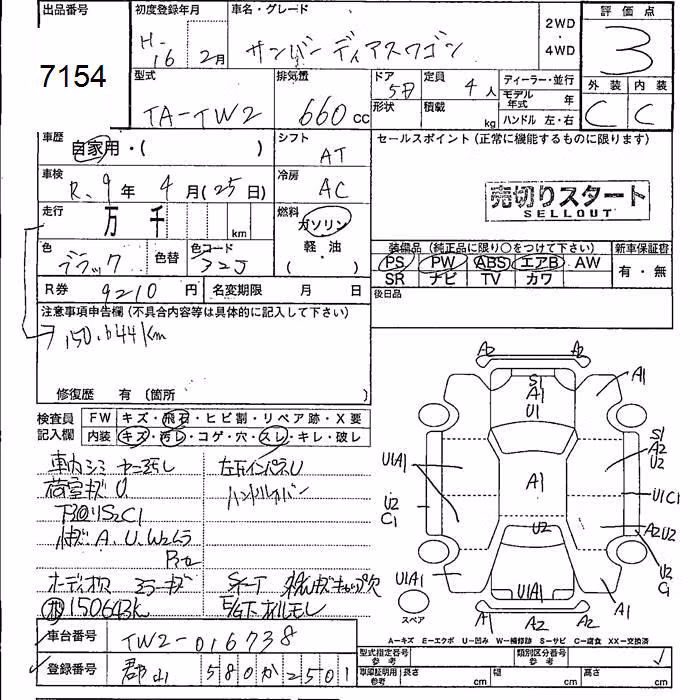 出品番号 初度登録年月 車名・グレード 2WD ・ 4WD 評価点
7154 H-16 2月 サンバー ディアスワゴン 3
型式 排気量 ドア 定員 ディーラー・並行 外装 内装
TA-TW2 660 cc 5D 4人 モデル年式 年 C C
形状 積載 kg ハンドル 左・右
車歴 自家用・( ) シフト AT セールスポイント (正常に機能するものに限ります)
車検 R. 9年 4月(25日) 冷房 AC
売切りスタート
SELLOUT
走行 万 千 km 燃料 ガソリン
軽・油
( )
色 ブラック 色替 色コード 32J
装備品 (純正品に限り○をつけて下さい) 新車保証書
PS PW ABS エアB AW 有・無
SR ナビ TV カワ
R券 9210円 名変期限 月 日 後日品
注意事項申告欄(不具合内容等は具体的に記入して下さい)
150.644km
修復歴 有 (箇所
検査員 記入欄 FW キズ・飛石・ヒビ割・リペア跡・X要
内装 キズ・汚レ・コゲ・穴・スレ・キレ・破レ
車内シミ ヤニ汚レ
左右インパネU
荷室キズ U
ハンドルカバー
下回りS2C1
A. U. W2ムラ
オーディオス ミラーキズ
150643K
E/GT オイルモレ
車台番号 TW2-016738
登録番号 郡山 580 か 2501
A2 A2
S1
A1
U1
A1
U1A1
U2
C1
A1
S1
A2
U2
U1C1
U2
A2U2
U2
C1
U1A1
U1A1
A1
A1 A2 A2
スペア
A-キズ E-エクボ U-凹み W-補修跡 S-サビ C-腐食 XX-交換済
型式指定番号 参考 類別区分番号 参考
車庫証明用 参考 長さ cm 幅 cm 高さ cm